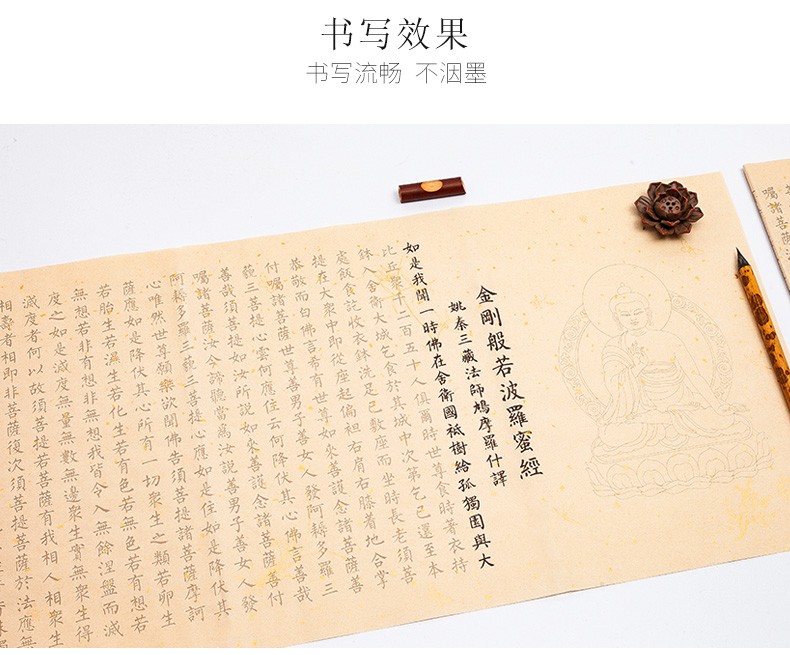 书写效果
书写流畅 不洇墨
金剛般若波羅蜜經
姚秦三藏法師鳩摩羅什譯
如是我聞一時佛在舍衛國祇樹給孤獨園與大
比丘衆千二百五十人俱爾時世尊食時著衣持
鉢入舍衛大城乞食於其城中次第乞已還至本
處飯食訖收衣鉢洗足已敷座而坐時長老須菩
提在大衆中即從座起偏袒右肩右膝着地合掌
恭敬而白佛言希有世尊如來善護念諸菩薩善
付囑諸菩薩世尊善男子善女人發阿耨多羅三
藐三菩提心雲何應住云何降伏其心佛言善哉
善哉須菩提如汝所說如來善護念諸菩薩善付
囑諸菩薩汝今諦聽當為汝說善男子善女人發
阿耨多羅三藐三菩提心應如是住如是降伏其
心唯然世尊願樂欲聞佛告須菩提諸菩薩摩訶
薩應如是降伏其心所有一切衆生之類若卵生
若胎生若濕生若化生若有色若無色若有想若
無想若非有想非無想我皆令入無餘涅盤而滅
度之如是滅度無量無數無邊衆生實無衆生得
滅度者何以故須菩提若菩薩有我相人相衆生
相壽者相即非菩薩復次須菩提菩薩於法應無
囑諸菩薩